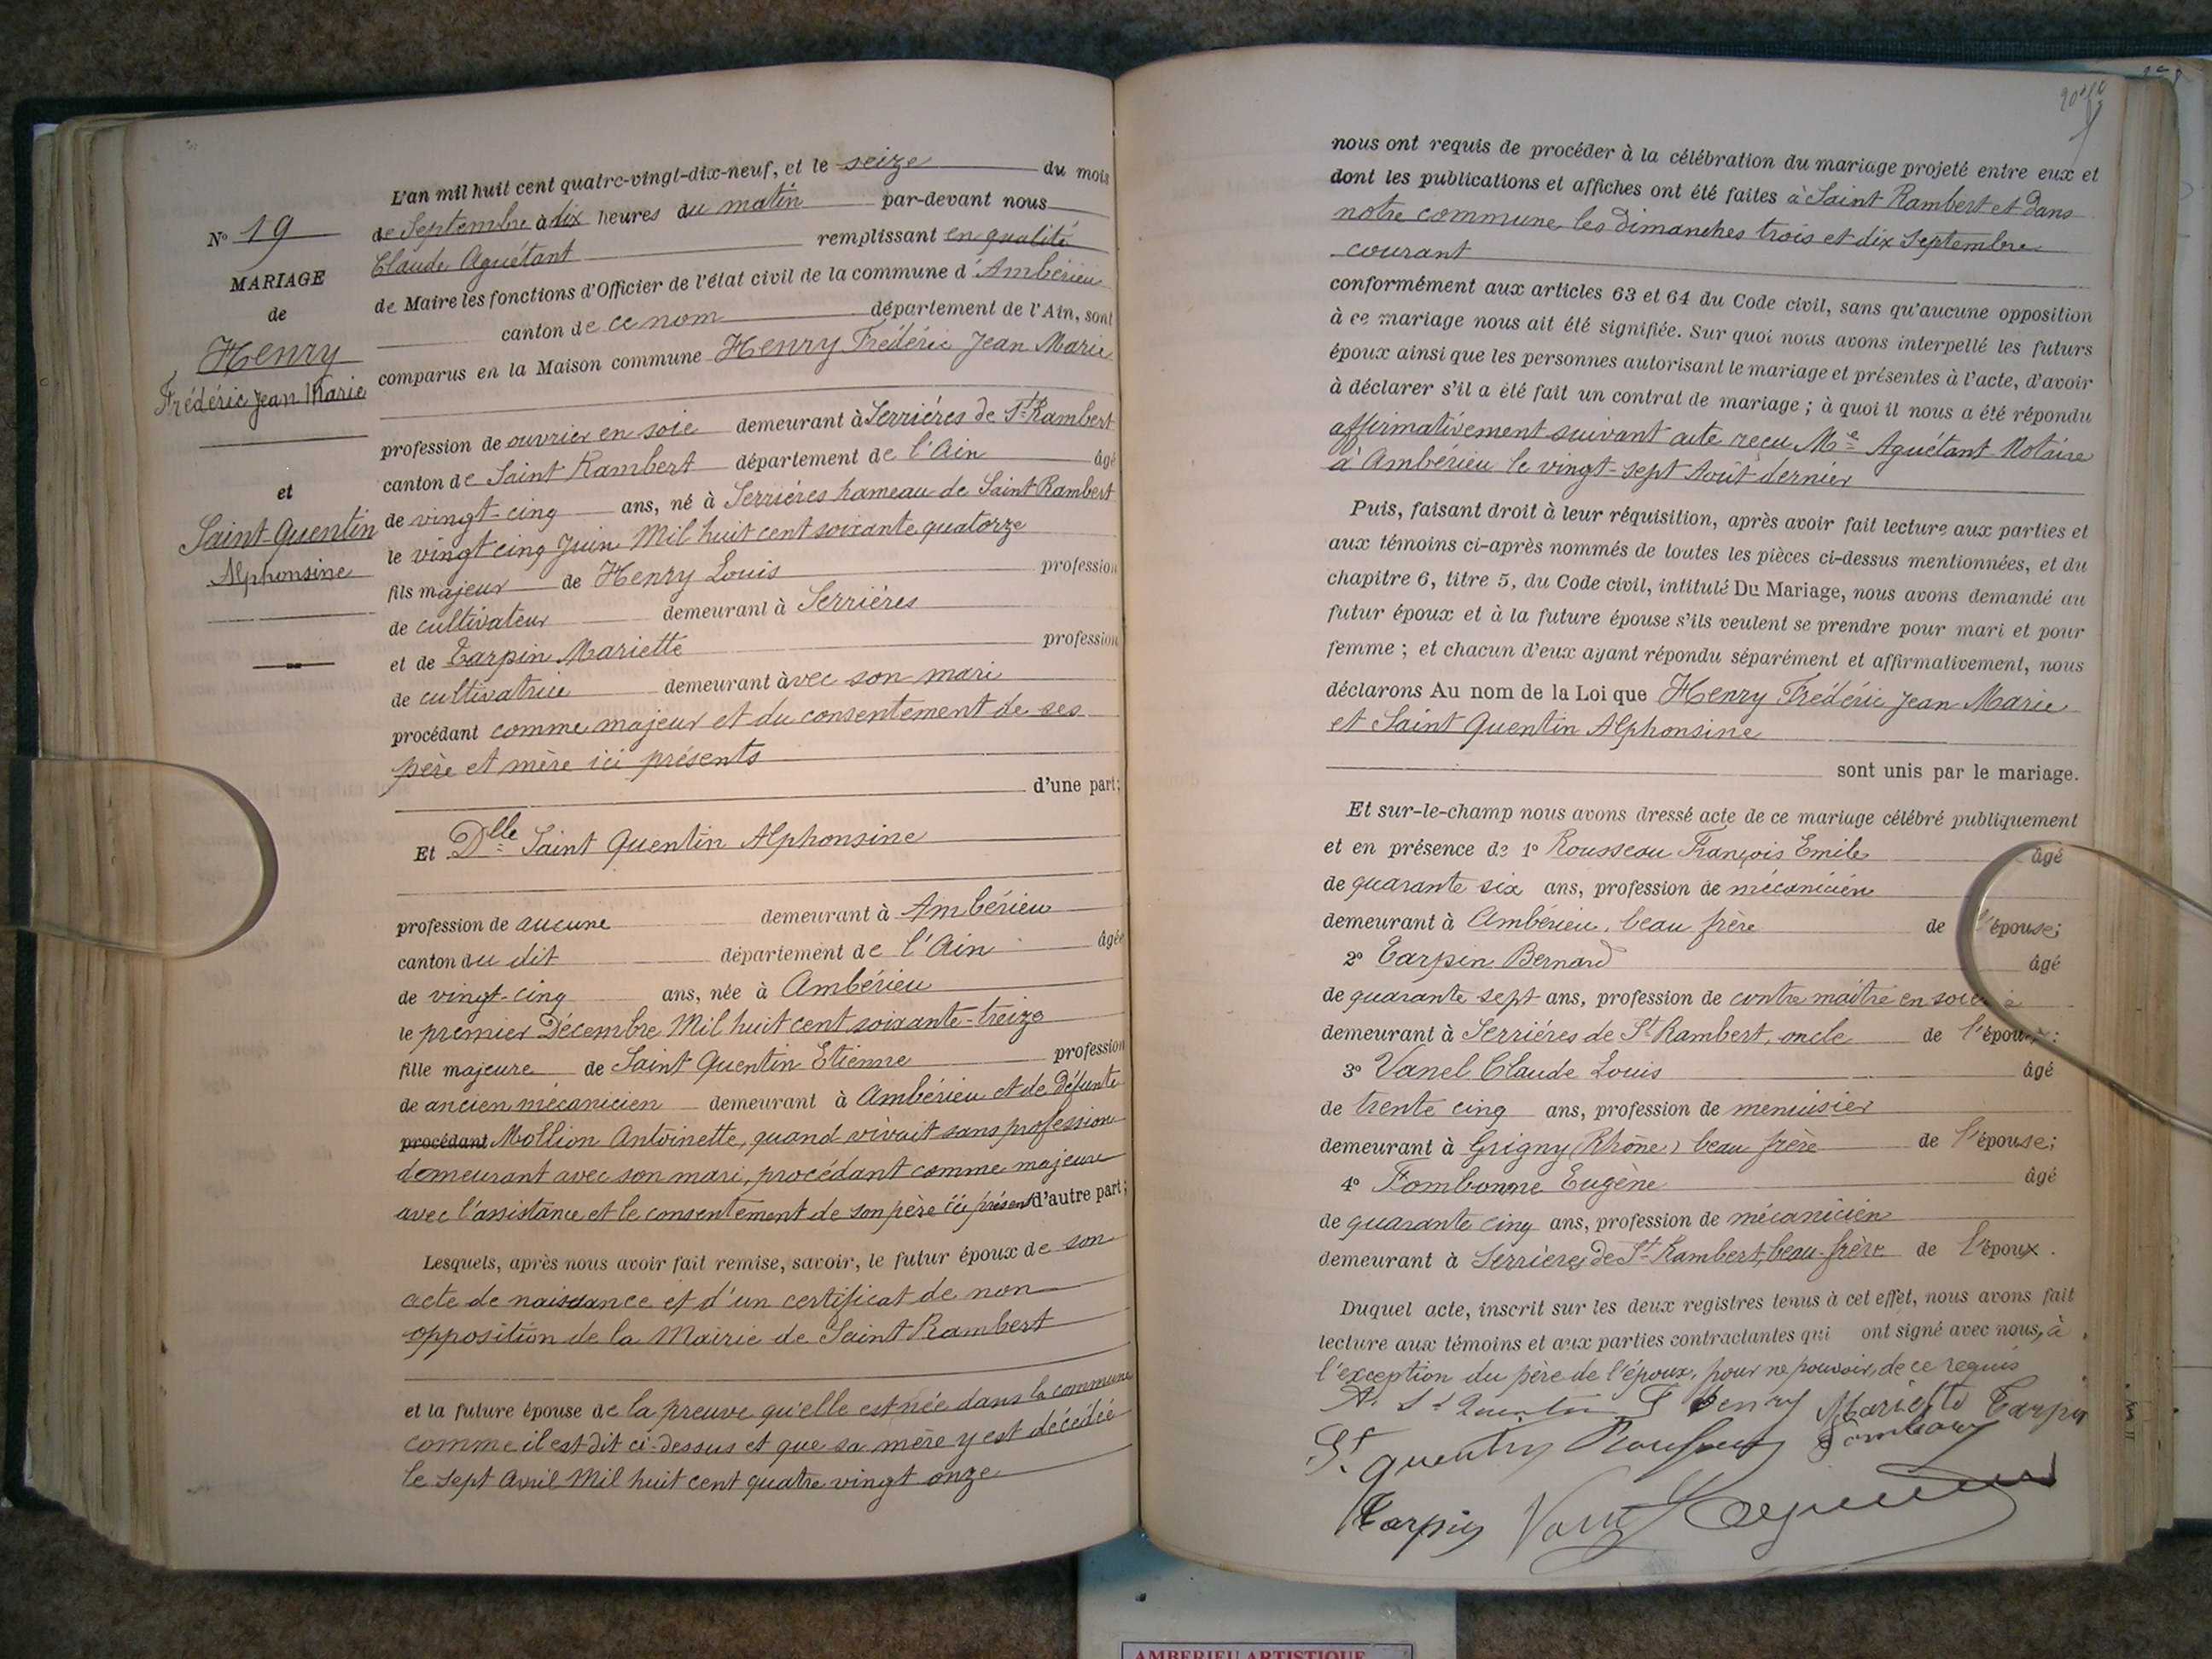 No 19
MARIAGE
de
Henry
Frédéric Jean Marie
et
Saint-Quentin
Alphonsine
L'an mil huit cent quatre-vingt-dix-neuf, et le seize du mois
de Septembre à dix heures du matin par-devant nous
Claude Aguétant remplissant en qualité
de Maire les fonctions d'Officier de l'état civil de la commune d'Ambérieu
canton de ce nom département de l'Ain, sont
comparus en la Maison commune Henry Frédéric Jean Marie
profession de ouvrier en soie demeurant à Serriéres de St Rambert
canton de Saint Rambert département de l'Ain âgé
de vingt-cinq ans, né à Serriéres hameau de Saint Rambert
le vingt cinq Juin Mil huit cent soixante quatorze
fils majeur de Henry Louis profession
de cultivateur demeurant à Serriéres
et de Tarpin Mariette profession
de cultivatrice demeurant avec son mari
procédant comme majeur et du consentement de ses
père et mère ici présents
d'une part;
Et Dlle Saint Quentin Alphonsine
profession de aucune demeurant à Ambérieu
canton du dit département de l'Ain âgée
de vingt-cinq ans, née à Ambérieu
le premier Décembre Mil huit cent soixante-treize
fille majeure de Saint Quentin Etienne profession
de ancien mécanicien demeurant à Ambérieu et de défunte
procédant Mollion Antoinette, quand vivait sans profession
demeurant avec son mari, procédant comme majeure
avec l'assistance et le consentement de son père ici présent d'autre part;
Lesquels, après nous avoir fait remise, savoir, le futur époux de son
acte de naissance et d'un certificat de non
opposition de la Mairie de Saint Rambert
et la future épouse de la preuve qu'elle est née dans la commune
comme il est dit ci-dessus et que sa mère y est décédée
le sept Avril Mil huit cent quatre vingt onze
nous ont requis de procéder à la célébration du mariage projeté entre eux et
dont les publications et affiches ont été faites à Saint Rambert et dans
notre commune les dimanches trois et dix Septembre
courant
conformément aux articles 63 et 64 du Code civil, sans qu'aucune opposition
à ce mariage nous ait été signifiée. Sur quoi nous avons interpellé les futurs
époux ainsi que les personnes autorisant le mariage et présentes à l'acte, d'avoir
à déclarer s'il a été fait un contrat de mariage; à quoi il nous a été répondu
affirmativement suivant acte reçu Me Aguétant Notaire
à Ambérieu le vingt-sept Août dernier
Puis, faisant droit à leur réquisition, après avoir fait lecture aux parties et
aux témoins ci-après nommés de toutes les pièces ci-dessus mentionnées, et du
chapitre 6, titre 5, du Code civil, intitulé Du Mariage, nous avons demandé au
futur époux et à la future épouse s'ils veulent se prendre pour mari et pour
femme; et chacun d'eux ayant répondu séparément et affirmativement, nous
déclarons Au nom de la Loi que Henry Frédéric Jean Marie
et Saint Quentin Alphonsine
sont unis par le mariage.
Et sur-le-champ nous avons dressé acte de ce mariage célébré publiquement
et en présence de 1o Rousseau François Emile âgé
de quarante six ans, profession de mécanicien
demeurant à Ambérieu, beau frère de l'épouse;
2o Tarpin Bernard âgé
de quarante sept ans, profession de contre maître en soie
demeurant à Serriéres de St Rambert, oncle de l'époux;
3o Vanel Claude Louis âgé
de trente cinq ans, profession de menuisier
demeurant à Grigny (Rhône) beau frère de l'épouse;
4o Fombonne Eugène âgé
de quarante cinq ans, profession de mécanicien
demeurant à Serrières de St Rambert, beau-frère de l'époux.
Duquel acte, inscrit sur les deux registres tenus à cet effet, nous avons fait
lecture aux témoins et aux parties contractantes qui ont signé avec nous, à
l'exception du père de l'époux, pour ne pouvoir, de ce requis
A. St Quentin F Henry Mariette Tarpin
St quentin Rousseau
Tarpin
AMBERIEU ARTISTIQUE